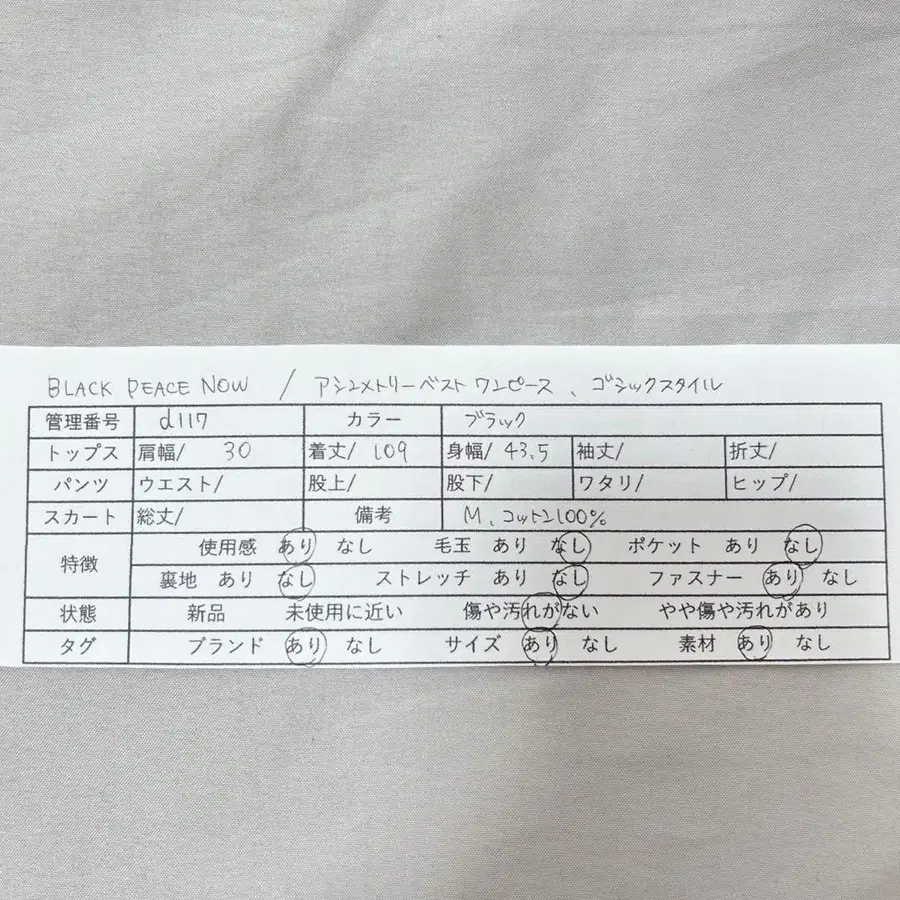 BLACK PEACE NOW / アシンメトリーベストワンピース、ゴシックスタイル
管理番号 d117 カラー ブラック
トップス 肩幅/ 30 着丈/ 109 身幅/ 43.5 袖丈/ 裄丈/
パンツ ウエスト/ 股上/ 股下/ ワタリ/ ヒップ/
スカート 総丈/ 備考 M、コットン100%
特徴 使用感 あり なし 毛玉 あり なし ポケット あり なし
裏地 あり なし ストレッチ あり なし ファスナー あり なし
状態 新品 未使用に近い 傷や汚れがない やや傷や汚れがあり
タグ ブランド あり なし サイズ あり なし 素材 あり なし